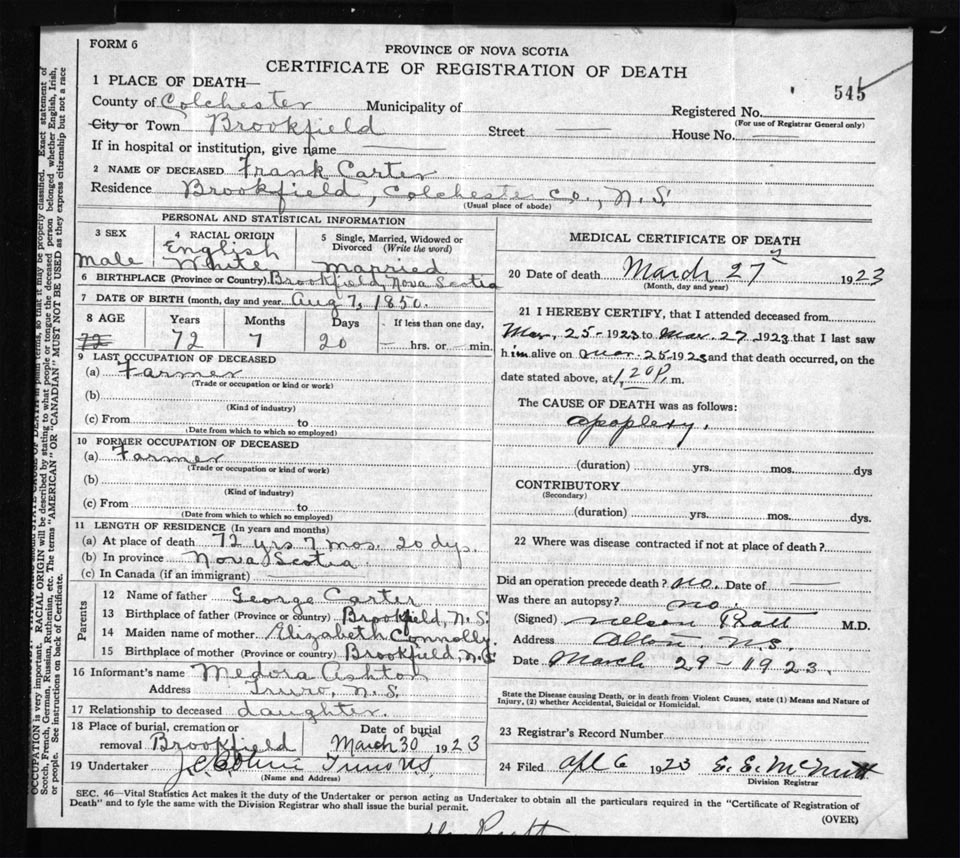 FORM 6
PROVINCE OF NOVA SCOTIA
CERTIFICATE OF REGISTRATION OF DEATH
545
1 PLACE OF DEATH—
County of Colchester Municipality of
Registered No.
(For use of Registrar General only)
City or Town Brookfield Street — House No. —
If in hospital or institution, give name
2 NAME OF DECEASED Frank Carter
Residence Brookfield, Colchester Co., N.S.
(Usual place of abode)
PERSONAL AND STATISTICAL INFORMATION
3 SEX
Male
4 RACIAL ORIGIN
English
White
5 Single, Married, Widowed or
Divorced (Write the word)
Married
6 BIRTHPLACE (Province or Country) Brookfield, Nova Scotia
7 DATE OF BIRTH (month, day and year) Aug 7, 1850.
8 AGE Years Months Days If less than one day,
72 72 7 20 — hrs. or — min.
9 LAST OCCUPATION OF DECEASED
(a) Farmer
(Trade or occupation or kind or work)
(b)
(Kind of industry)
(c) From to
(Date from which so employed)
10 FORMER OCCUPATION OF DECEASED
(a) Farmer
(Trade or occupation or kind of work)
(b)
(Kind of industry)
(c) From to
(Date from which so employed)
11 LENGTH OF RESIDENCE (In years and months)
(a) At place of death 72 yrs 7 mos. 20 dys.
(b) In province Nova Scotia
(c) In Canada (if an immigrant)
Parents
12 Name of father George Carter
13 Birthplace of father (Province or country) Brookfield, N.S.
14 Maiden name of mother Elizabeth Connolly.
15 Birthplace of mother (Province or country) Brookfield, N.S
16 Informant's name Medora Ashton
Address Truro, N.S.
17 Relationship to deceased daughter.
18 Place of burial, cremation or Date of burial
removal Brookfield March 30 1923
19 Undertaker Truro N.S
(Name and Address)
MEDICAL CERTIFICATE OF DEATH
20 Date of death March 27 1923
(Month, day and year)
21 I HEREBY CERTIFY, that I attended deceased from
Mar, 25-1923 to Mar. 27. 1923 that I last saw
him alive on Mar. 25-1923 and that death occurred, on the
date stated above, at 1,20 P. m.
The CAUSE OF DEATH was as follows:
apoplexy.
(duration) yrs. mos. dys
CONTRIBUTORY
(Secondary)
(duration) yrs. mos. dys.
22 Where was disease contracted if not at place of death?
Did an operation precede death? no. Date of —
Was there an autopsy? no.
(Signed) Nelson Pratt M.D.
Address N.S.
Date March 29-1923.
State the Disease causing Death, or in death from Violent Causes, state (1) Means and Nature of
Injury, (2) whether Accidental, Suicidal or Homicidal.
23 Registrar's Record Number
24 Filed Apl 6 1923 E. E. McNutt
Division Registrar
SEC. 46—Vital Statistics Act makes it the duty of the Undertaker or person acting as Undertaker to obtain all the particulars required in the "Certificate of Registration of
Death" and to fyle the same with the Division Registrar who shall issue the burial permit.
(OVER)
OCCUPATION is very important. RACIAL ORIGIN will be described by stating to what people or tongue the deceased person belonged whether English, Irish,
Scotch, French, German, Russian, Ruthenian, etc. The terms "AMERICAN" OR "CANADIAN" MUST NOT BE USED as they express citizenship but not a race
or people. See instructions on back of Certificate.